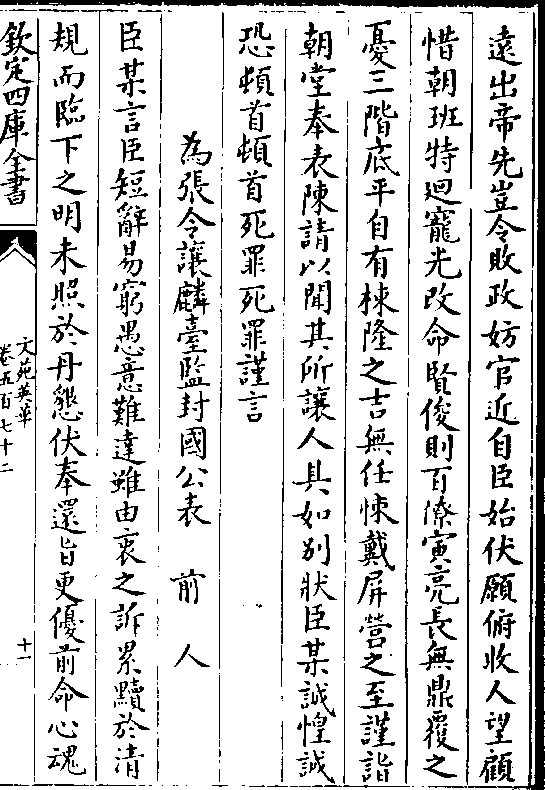 遠出帝先豈令敗政妨官近自臣始伏願俯收人望顧
惜朝班特迴寵光改命賢俊則百僚寅亮長無鼎覆之
憂三階底平自有棟隆之吉無任悚戴屏營之至謹詣
朝堂奉表陳請以聞其所讓人具如別狀臣某誠惶誠
恐頓首頓首死罪死罪謹言
為張令讓麟臺監封國公表 前人
臣某言臣短辭易窮愚意難達雖由衷之訴累黷於清
規而臨下之明未照於丹懇伏奉還旨更優前命心魂
欽定四庫全書
文苑英華
卷五百七十二
十一